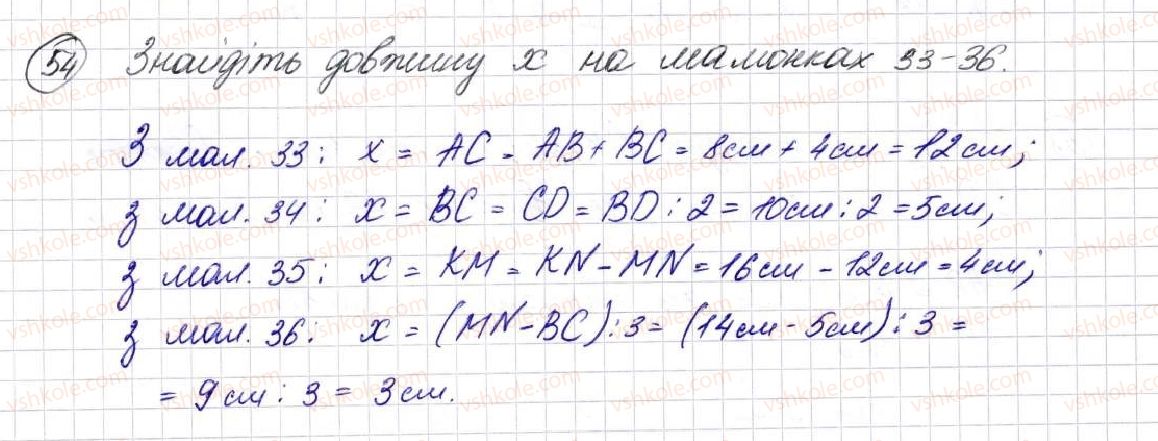 54 Знайдіть довжину x на малюнках 33-36.
З мал. 33: x = AC = AB + BC = 8см + 4см = 12см;
з мал. 34: x = BC = CD = BD : 2 = 10см : 2 = 5см;
з мал. 35: x = KM = KN - MN = 16см - 12см = 4см;
з мал. 36: x = (MN - BC) : 3 = (14см - 5см) : 3 =
= 9см : 3 = 3см.